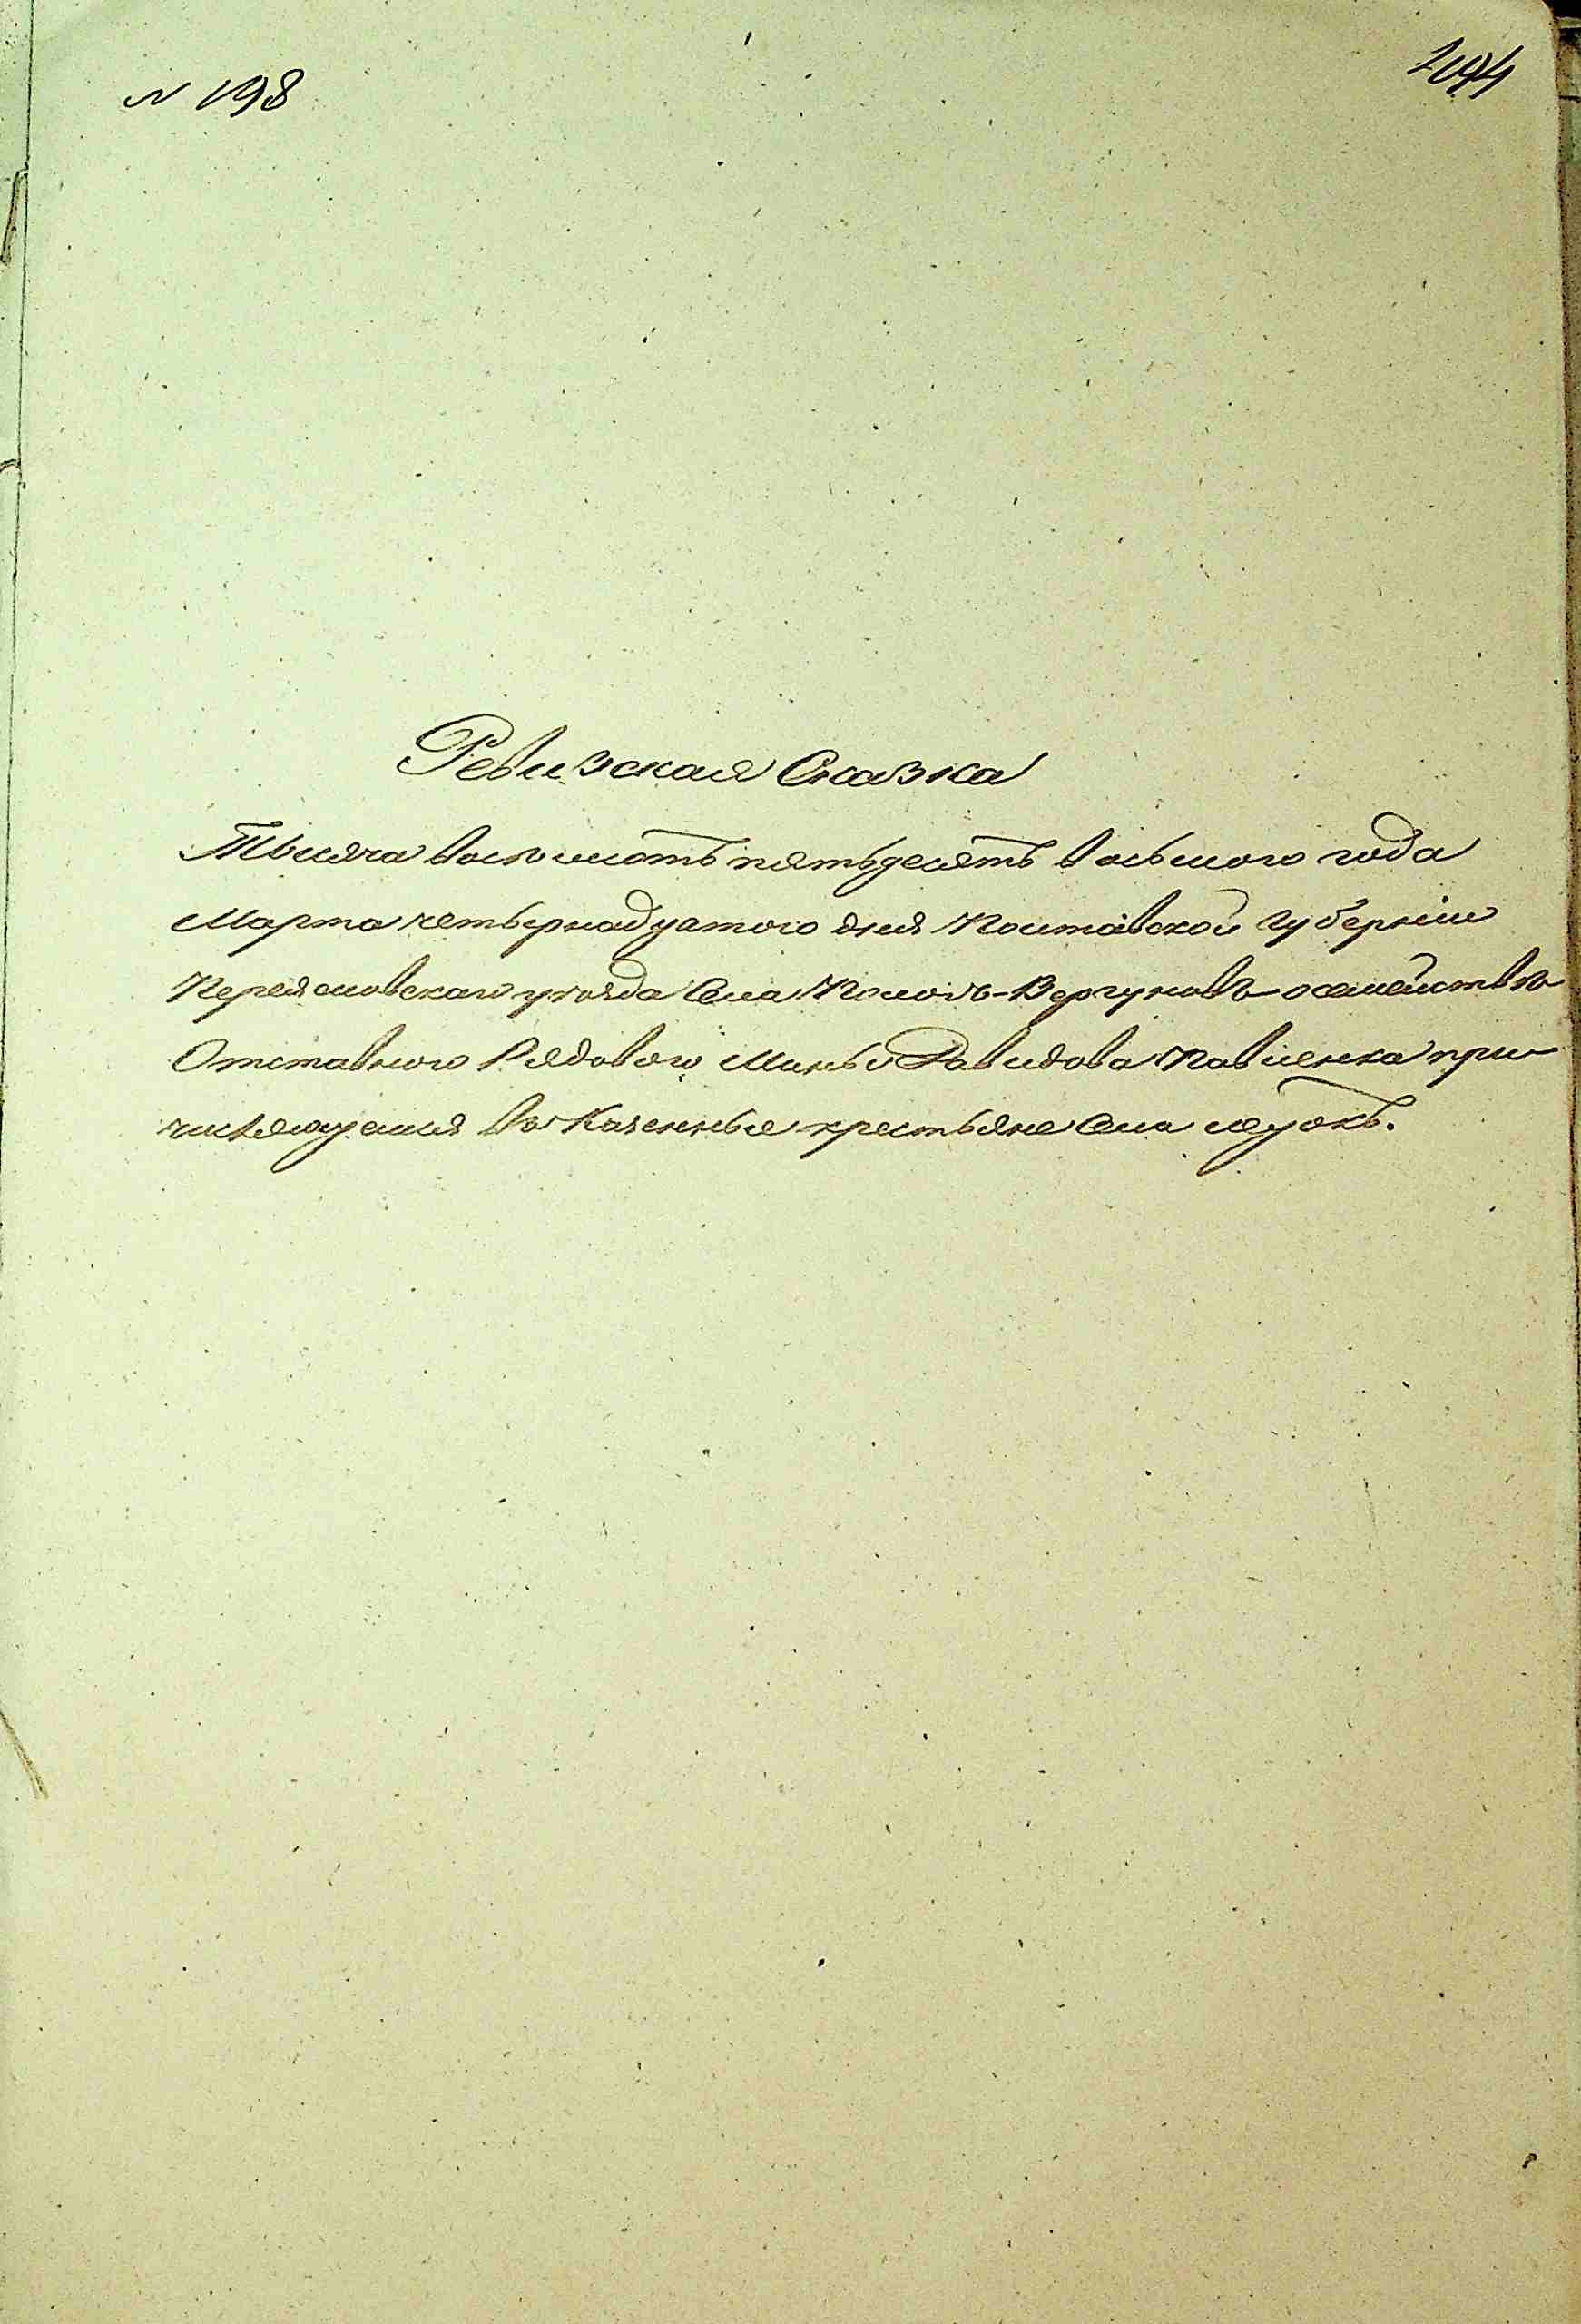 N 198
244
Ревизская Сказка
Тысяча восемьсотъ пятьдесятъ восьмого года
Марта четырнадцатого дня Полтавской Губерніи
Переясловскаго уѣзда Села Помокль-Вергуновъ о семействѣ
Отставного Рядового Мины Давидова Павленка при
числяющемся въ Казенные крестьяне Села